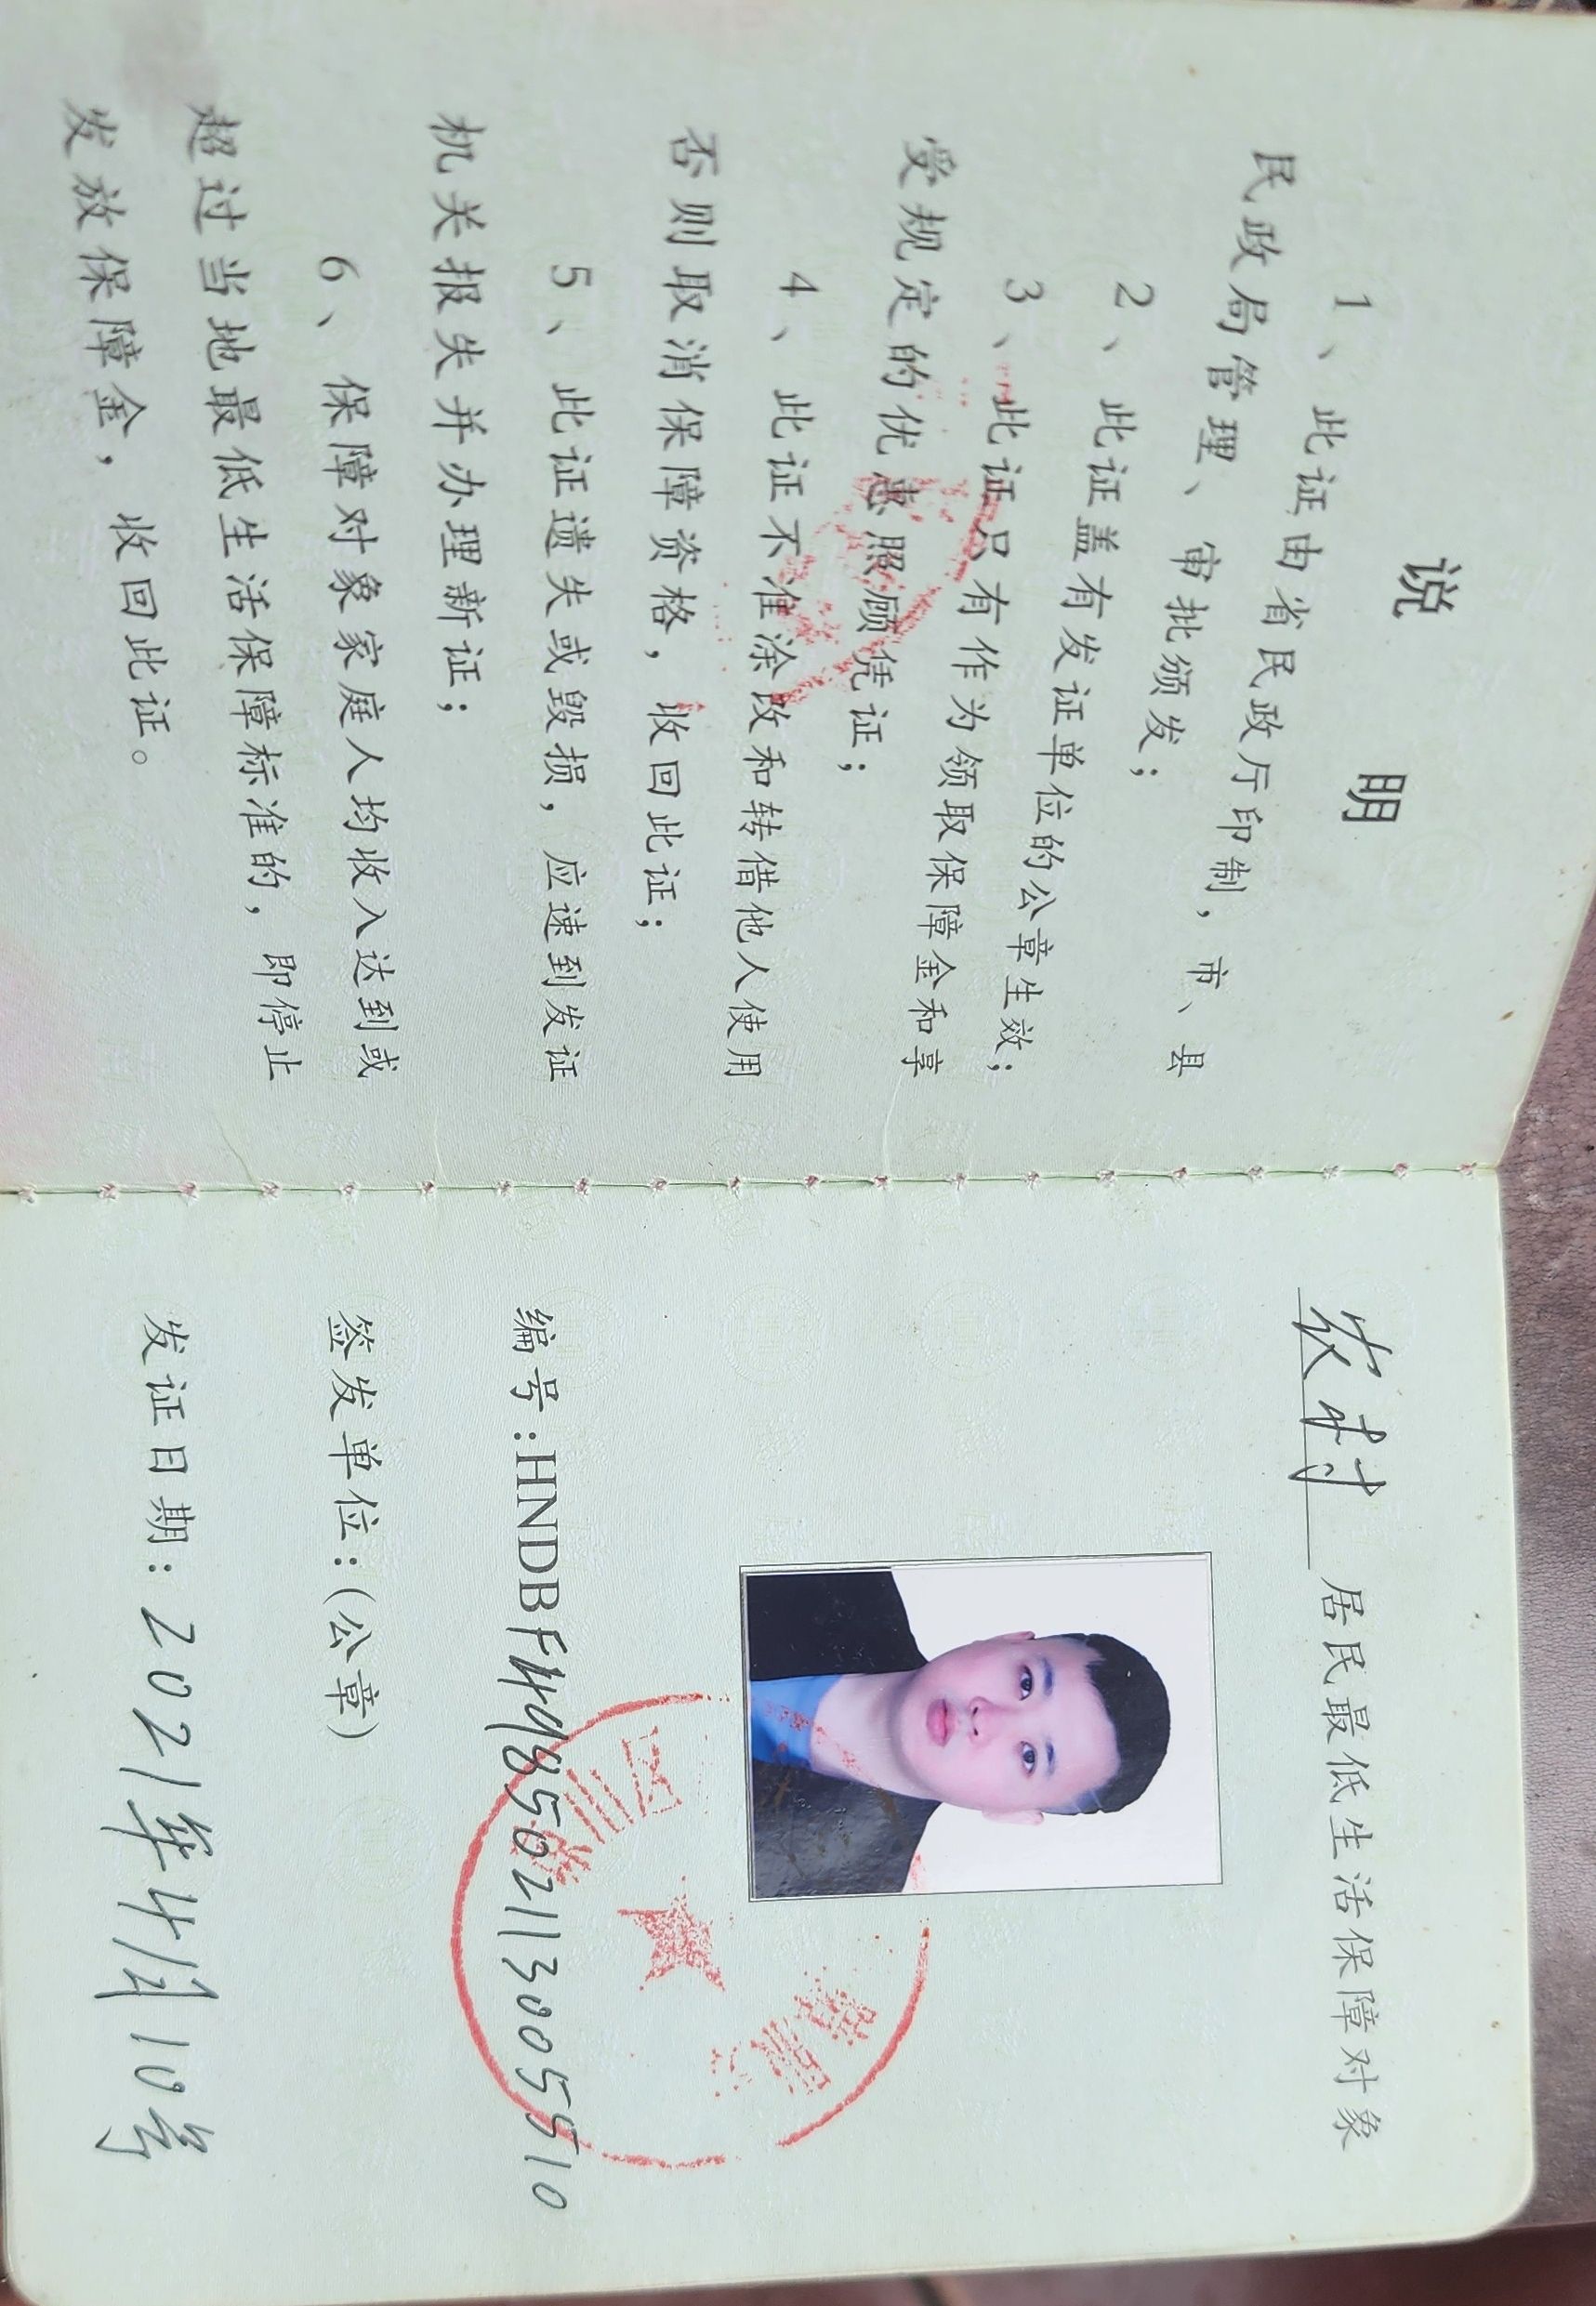 说 明
1、此证由省民政厅印制，市、县
民政局管理、审批颁发；
2、此证盖有发证单位的公章生效；
3、此证只有作为领取保障金和享
受规定的优惠照顾凭证；
4、此证不准涂改和转借他人使用
否则取消保障资格，收回此证；
5、此证遗失或毁损，应速到发证
机关报失并办理新证；
6、保障对象家庭人均收入达到或
超过当地最低生活保障标准的，即停止
发放保障金，收回此证。
农村 居民最低生活保障对象
编号:HNDB
签发单位:(公章)
发证日期: 2021年4月10号